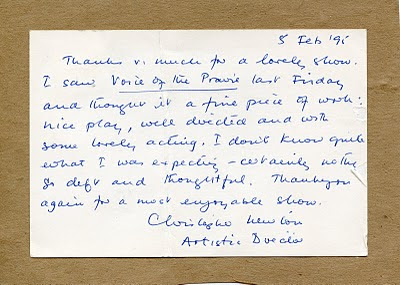 5 Feb '95
Thanks v. much for a lovely show.
I saw Voice of the Prairie last Friday
and thought it a fine piece of work:
nice play, well directed and with
some lovely acting. I don't know quite
what I was expecting – certainly nothing
so deft and thoughtful. Thankyou
again for a most enjoyable show.
Christopher Newton
Artistic Director